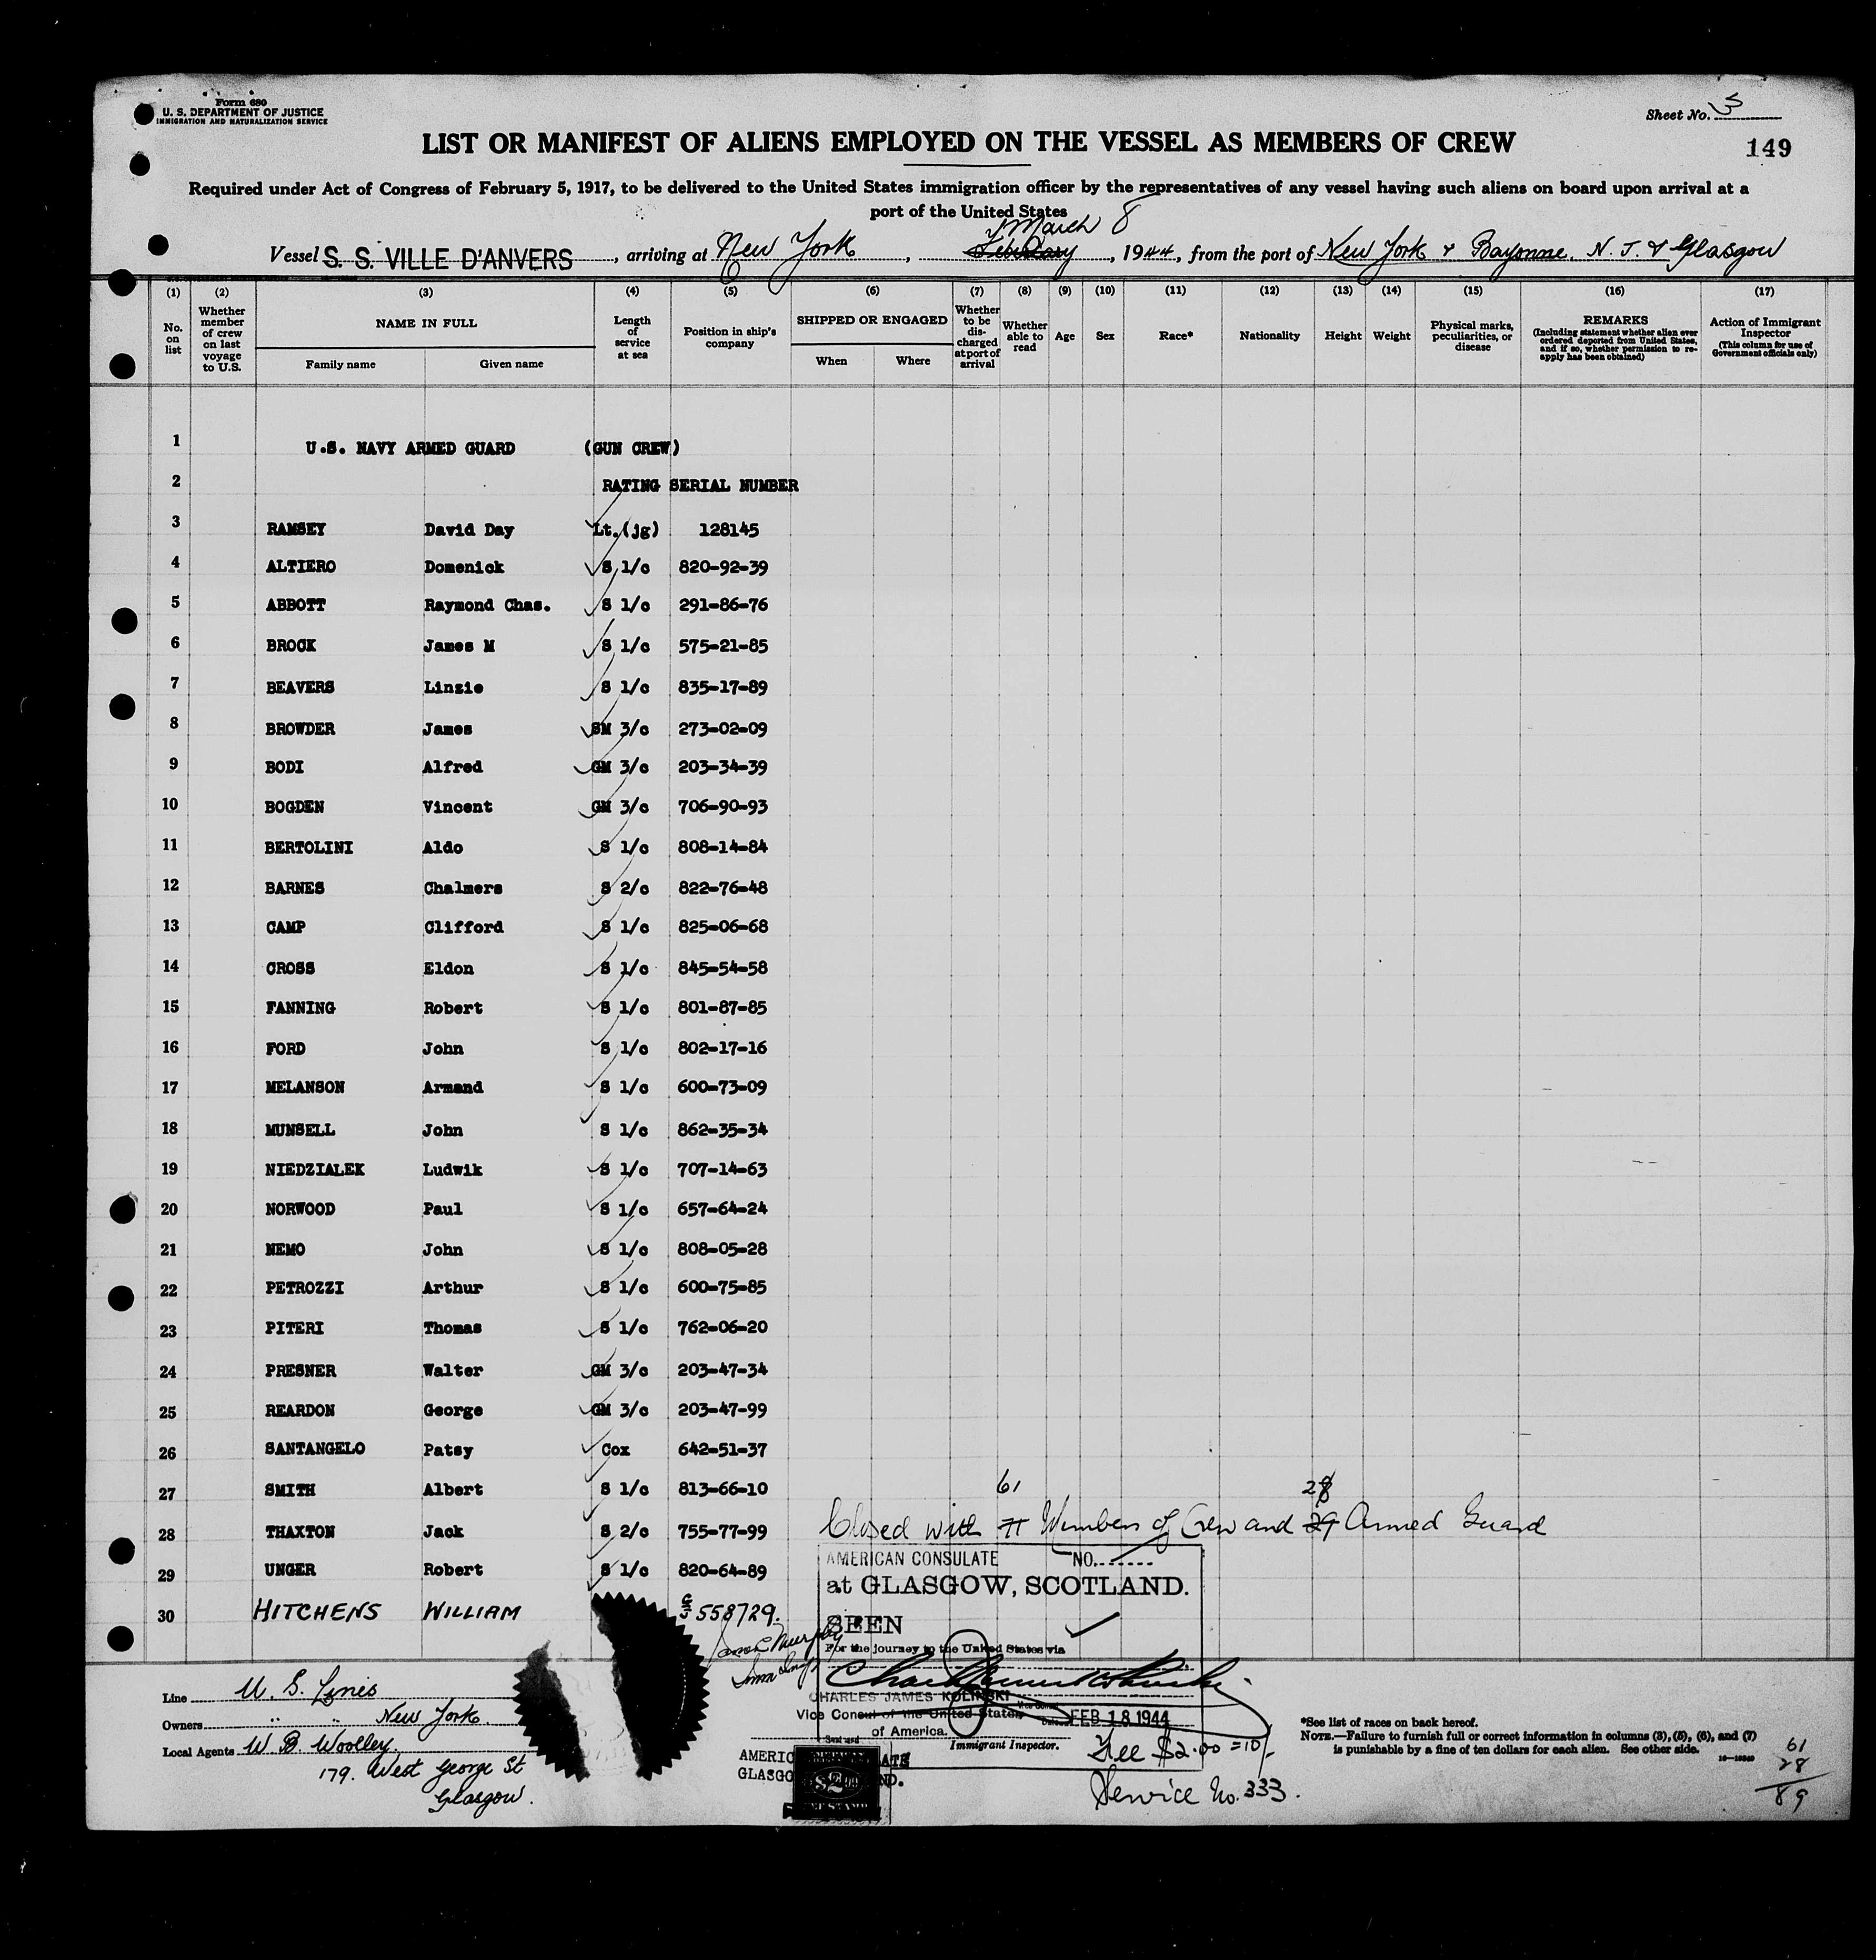 Form 680
U. S. DEPARTMENT OF JUSTICE
IMMIGRATION AND NATURALIZATION SERVICE
Sheet No. 5
149
LIST OR MANIFEST OF ALIENS EMPLOYED ON THE VESSEL AS MEMBERS OF CREW
Required under Act of Congress of February 5, 1917, to be delivered to the United States immigration officer by the representatives of any vessel having such aliens on board upon arrival at a
port of the United States
March 8
Vessel S. S. VILLE D'ANVERS, arriving at New York, February, 1944, from the port of New York & Bayonne. N. J. & Glasgow
(1) (2) (3) (4) (5) (6) (7) (8) (9) (10) (11) (12) (13) (14) (15) (16) (17)
No. on list
Whether member of crew on last voyage to U.S.
NAME IN FULL
Family name Given name
Length of service at sea
Position in ship's company
SHIPPED OR ENGAGED
When Where
Whether to be discharged at port of arrival
Whether able to read
Age
Sex
Race*
Nationality
Height
Weight
Physical marks, peculiarities, or disease
REMARKS
(Including statement whether alien ever ordered deported from United States, and if so, whether permission to re-apply has been obtained)
Action of Immigrant Inspector
(This column for use of Government officials only)
1 U.S. NAVY ARMED GUARD (GUN CREW)
2 RATING SERIAL NUMBER
3 RAMSEY David Day Lt.(jg) 128145
4 ALTIERO Domenick S 1/c 820-92-39
5 ABBOTT Raymond Chas. S 1/c 291-86-76
6 BROCK James M S 1/c 575-21-85
7 BEAVERS Linzie S 1/c 835-17-89
8 BROWDER James SM 3/c 273-02-09
9 BODI Alfred GM 3/c 203-34-39
10 BOGDEN Vincent GM 3/c 706-90-93
11 BERTOLINI Aldo S 1/c 808-14-84
12 BARNES Chalmers S 2/c 822-76-48
13 CAMP Clifford S 1/c 825-06-68
14 CROSS Eldon S 1/c 845-54-58
15 FANNING Robert S 1/c 801-87-85
16 FORD John S 1/c 802-17-16
17 MELANSON Armand S 1/c 600-73-09
18 MUNSELL John S 1/c 862-35-34
19 NIEDZIALEK Ludwik S 1/c 707-14-63
20 NORWOOD Paul S 1/c 657-64-24
21 NEMO John S 1/c 808-05-28
22 PETROZZI Arthur S 1/c 600-75-85
23 PITERI Thomas S 1/c 762-06-20
24 PRESNER Walter GM 3/c 203-47-34
25 REARDON George GM 3/c 203-47-99
26 SANTANGELO Patsy Cox 642-51-37
27 SMITH Albert S 1/c 813-66-10
61 28
28 THAXTON Jack S 2/c 755-77-99
Closed with 77 Members of Crew and 29 Armed Guard
29 UNGER Robert S 1/c 820-64-89
30 HITCHENS WILLIAM 558729.
AMERICAN CONSULATE NO.
at GLASGOW, SCOTLAND.
SEEN
For the journey to the United States via
CHARLES JAMES KOLINSKI
Vice Consul of the United States
of America.
FEB 18 1944
Immigrant Inspector.
Fee $2.00 = 10/-
Service No. 333.
Line U. S. Lines
Owners " " New York.
Local Agents W. B. Woolley.
179. West George St
Glasgow.
$2.00
*See list of races on back hereof.
NOTE.—Failure to furnish full or correct information in columns (3), (5), (6), and (7)
is punishable by a fine of ten dollars for each alien. See other side.
61
28
89